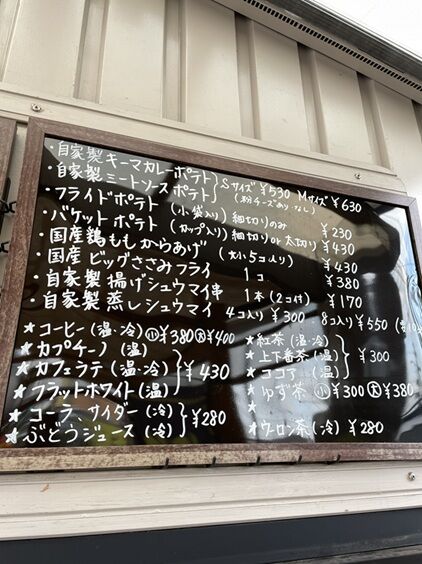 ・自家製キーマカレーポテト
・自家製ミートソースポテト } Sサイズ ¥530 Mサイズ ¥630
(粉チーズあり・なし)
・フライドポテト (小袋入り) 細切りのみ ¥230
・バケットポテト (カップ入り) 細切り or 太切り ¥430
・国産鶏ももからあげ (大小5コ入り) ¥430
・国産ビッグささみフライ 1コ ¥380
・自家製揚げシュウマイ串 1本(2コ付) ¥170
・自家製蒸しシュウマイ 4コ入り ¥300 8コ入り ¥550
★コーヒー(温・冷) 小¥380 大¥400
★カプチーノ (温)
★カフェラテ (温・冷) } ¥430
★フラットホワイト(温)
★コーラ、サイダー(冷) } ¥280
★ぶどうジュース (冷)
★紅茶(温・冷)
★上下番茶(温) } ¥300
★ココア (温)
★ゆず茶 小¥300 大¥380
★
★ウーロン茶(冷) ¥280